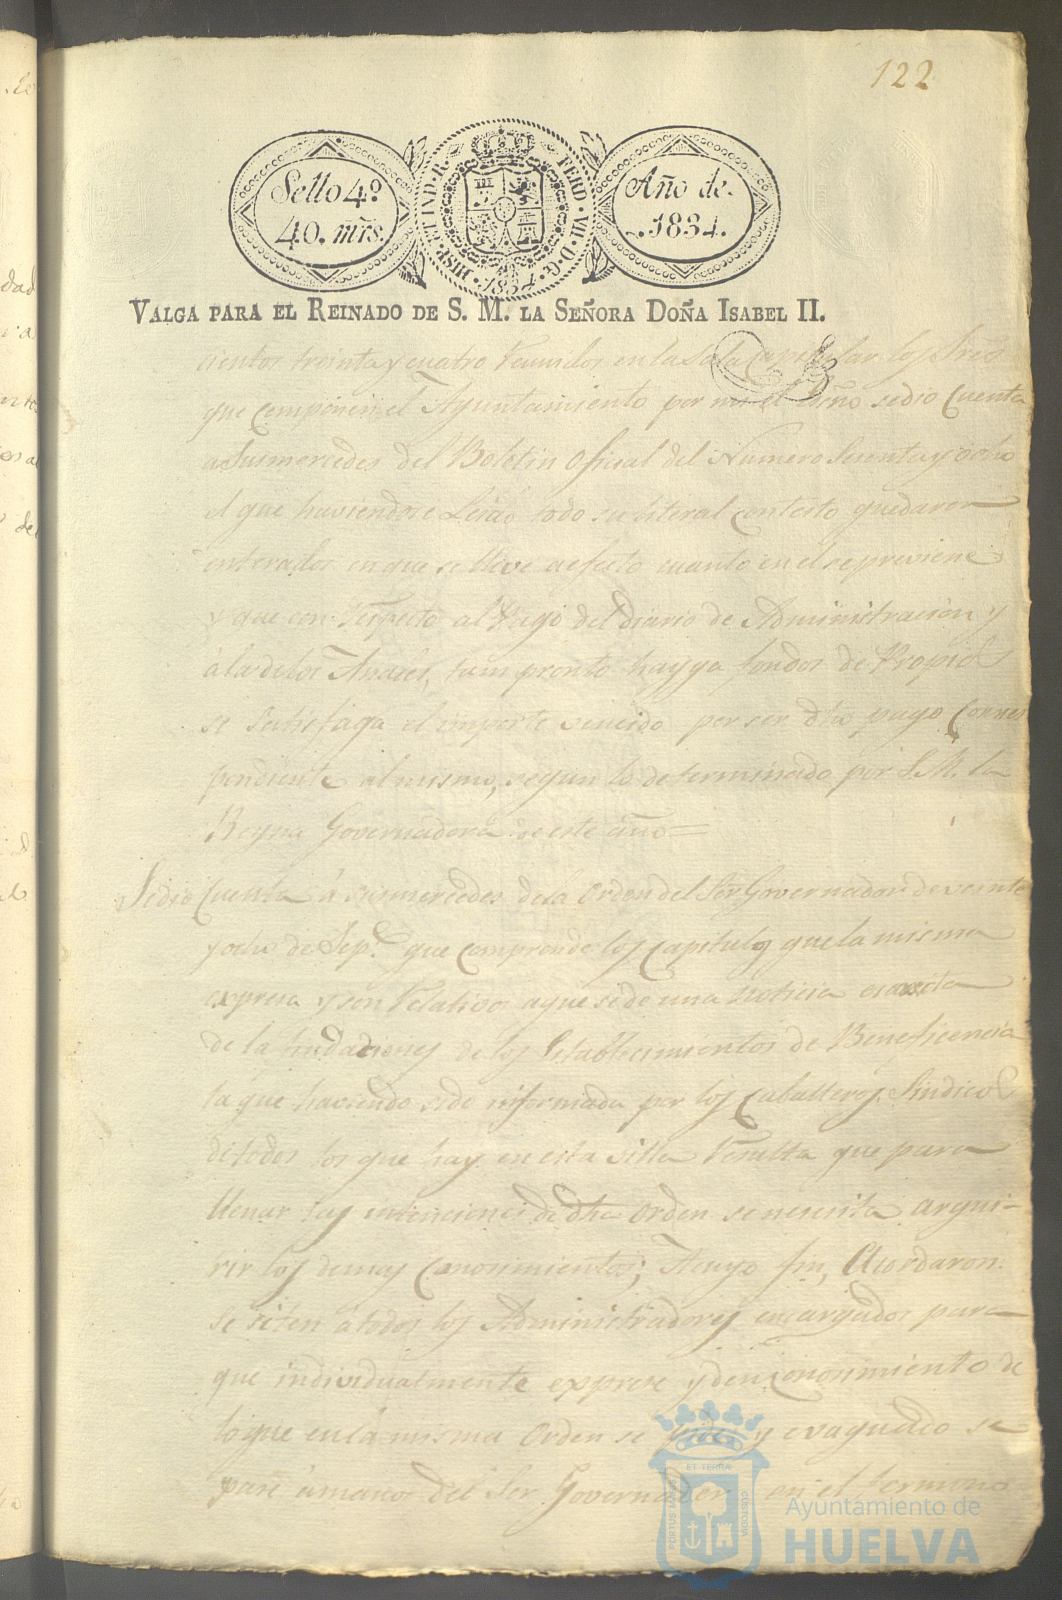 122
Sello 4º
40. mrs.
HISP. ET IND. R.
FERD. VII. D. G.
1834
Año de
1834.
VALGA PARA EL REINADO DE S. M. LA SEÑORA DOÑA ISABEL II.
cientos treinta y cuatro reunidos en la Sala Capitular los Sres
que componen el Ayuntamiento por mi el Esno se dio Cuenta
a Susmercedes del Boletin Oficial del Numero Sesenta y ocho
el que haviendose Leido todo su literal contesto quedaron
enterados en que se lleve a efecto cuanto en el se previene
y que con respecto al Pago del diario de Administracion y
á la de los Anales, tam pronto hayga fondos de Propios
se satisfaga el importe vencido por ser dha pago Corres
pondiente al mismo, segun lo determinado por S.M. la
Reyna Governadora de este año=
Se dio Cuenta á susmercedes de la Orden del Sor Governador de veinte
y ocho de Sepe. que comprende los Capitulos que la misma
expresa y son relativos a que se de una noticia esacta
de la fundaciones de los Establecimientos de Beneficencia
la que haviendo sido informada por los Caballeros Sindicos
de todos los que hay en esta villa resulta que para
llenar las intenciones de dha Orden se necesita arqui-
rir los demas Conosimientos; A cuyo fin, Acordaron
se siten á todos los Administradores encargados para
que individualmente exprese y den Conosimiento de
lo que en la misma Orden se pide y evaquado se
pase á manos del Sor Governador en el termino
PORTUS MARIS
ET TERRÆ
CUSTODIA
Ayuntamiento de
HUELVA